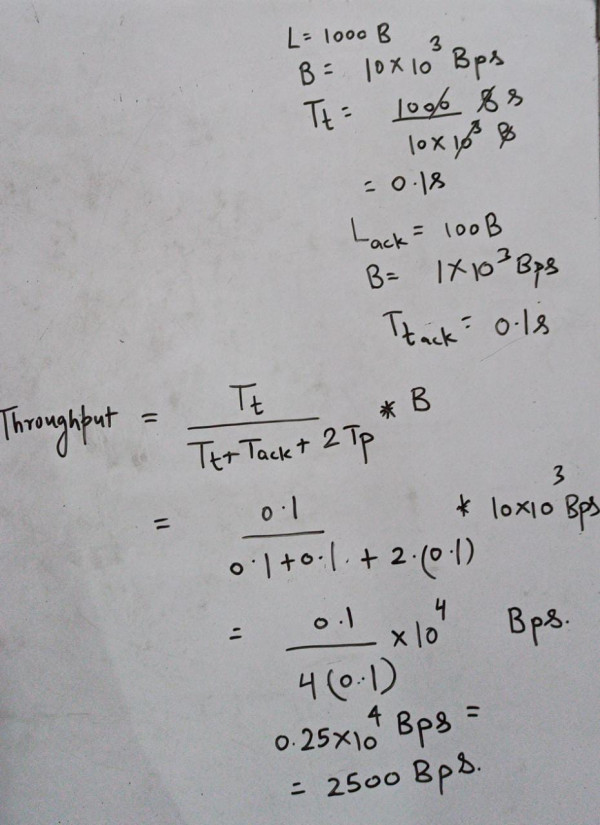 L = 1000 B
B = 10 × 10³ Bps
Tt = 1000 B s / 10 × 10³ B
= 0.1s
Lack = 100B
B = 1 × 10³ Bps
Ttack = 0.1s
Throughput = Tt / Tt + Tack + 2 Tp * B
= 0.1 / 0.1 + 0.1 + 2.(0.1) * 10×10³ Bps
= 0.1 / 4(0.1) × 10⁴ Bps.
0.25×10⁴ Bps =
= 2500 Bps.